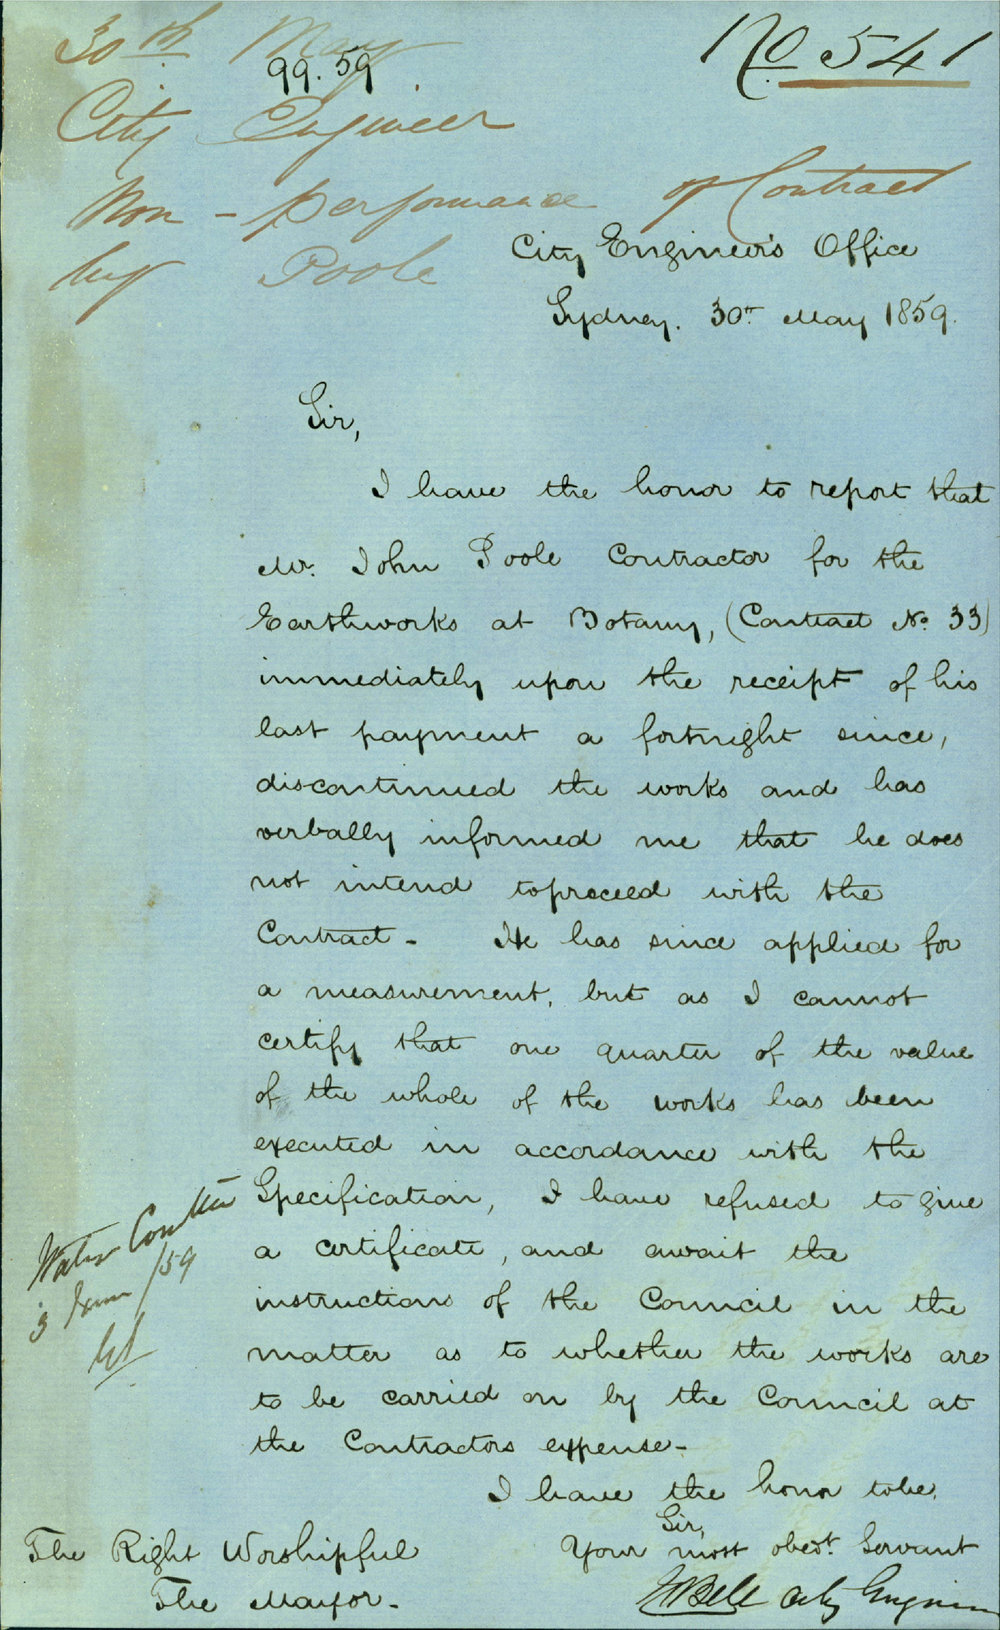 30th May
99.59
No 541
City Engineer
Non-performance of Contract
by Poole
City Engineer's Office
Sydney. 30th May 1859.
Sir,
I have the honor to report that
Mr. John Poole Contractor for the
Earthworks at Botany, (Contract No. 33)
immediately upon the receipt of his
last payment a fortnight since,
discontinued the works and has
verbally informed me that he does
not intend to proceed with the
Contract- He has since applied for
a measurement, but as I cannot
certify that one quarter of the value
of the whole of the works has been
executed in accordance with the
Specification, I have refused to give
a certificate, and await the
instructions of the Council in the
matter as to whether the works are
to be carried on by the Council at
the Contractors expense-
I have the honor to be,
Sir,
Your most obedt. Servant
EBell City Engineer
The Right Worshipful
The Mayor-
Water Comttee
3 June /59